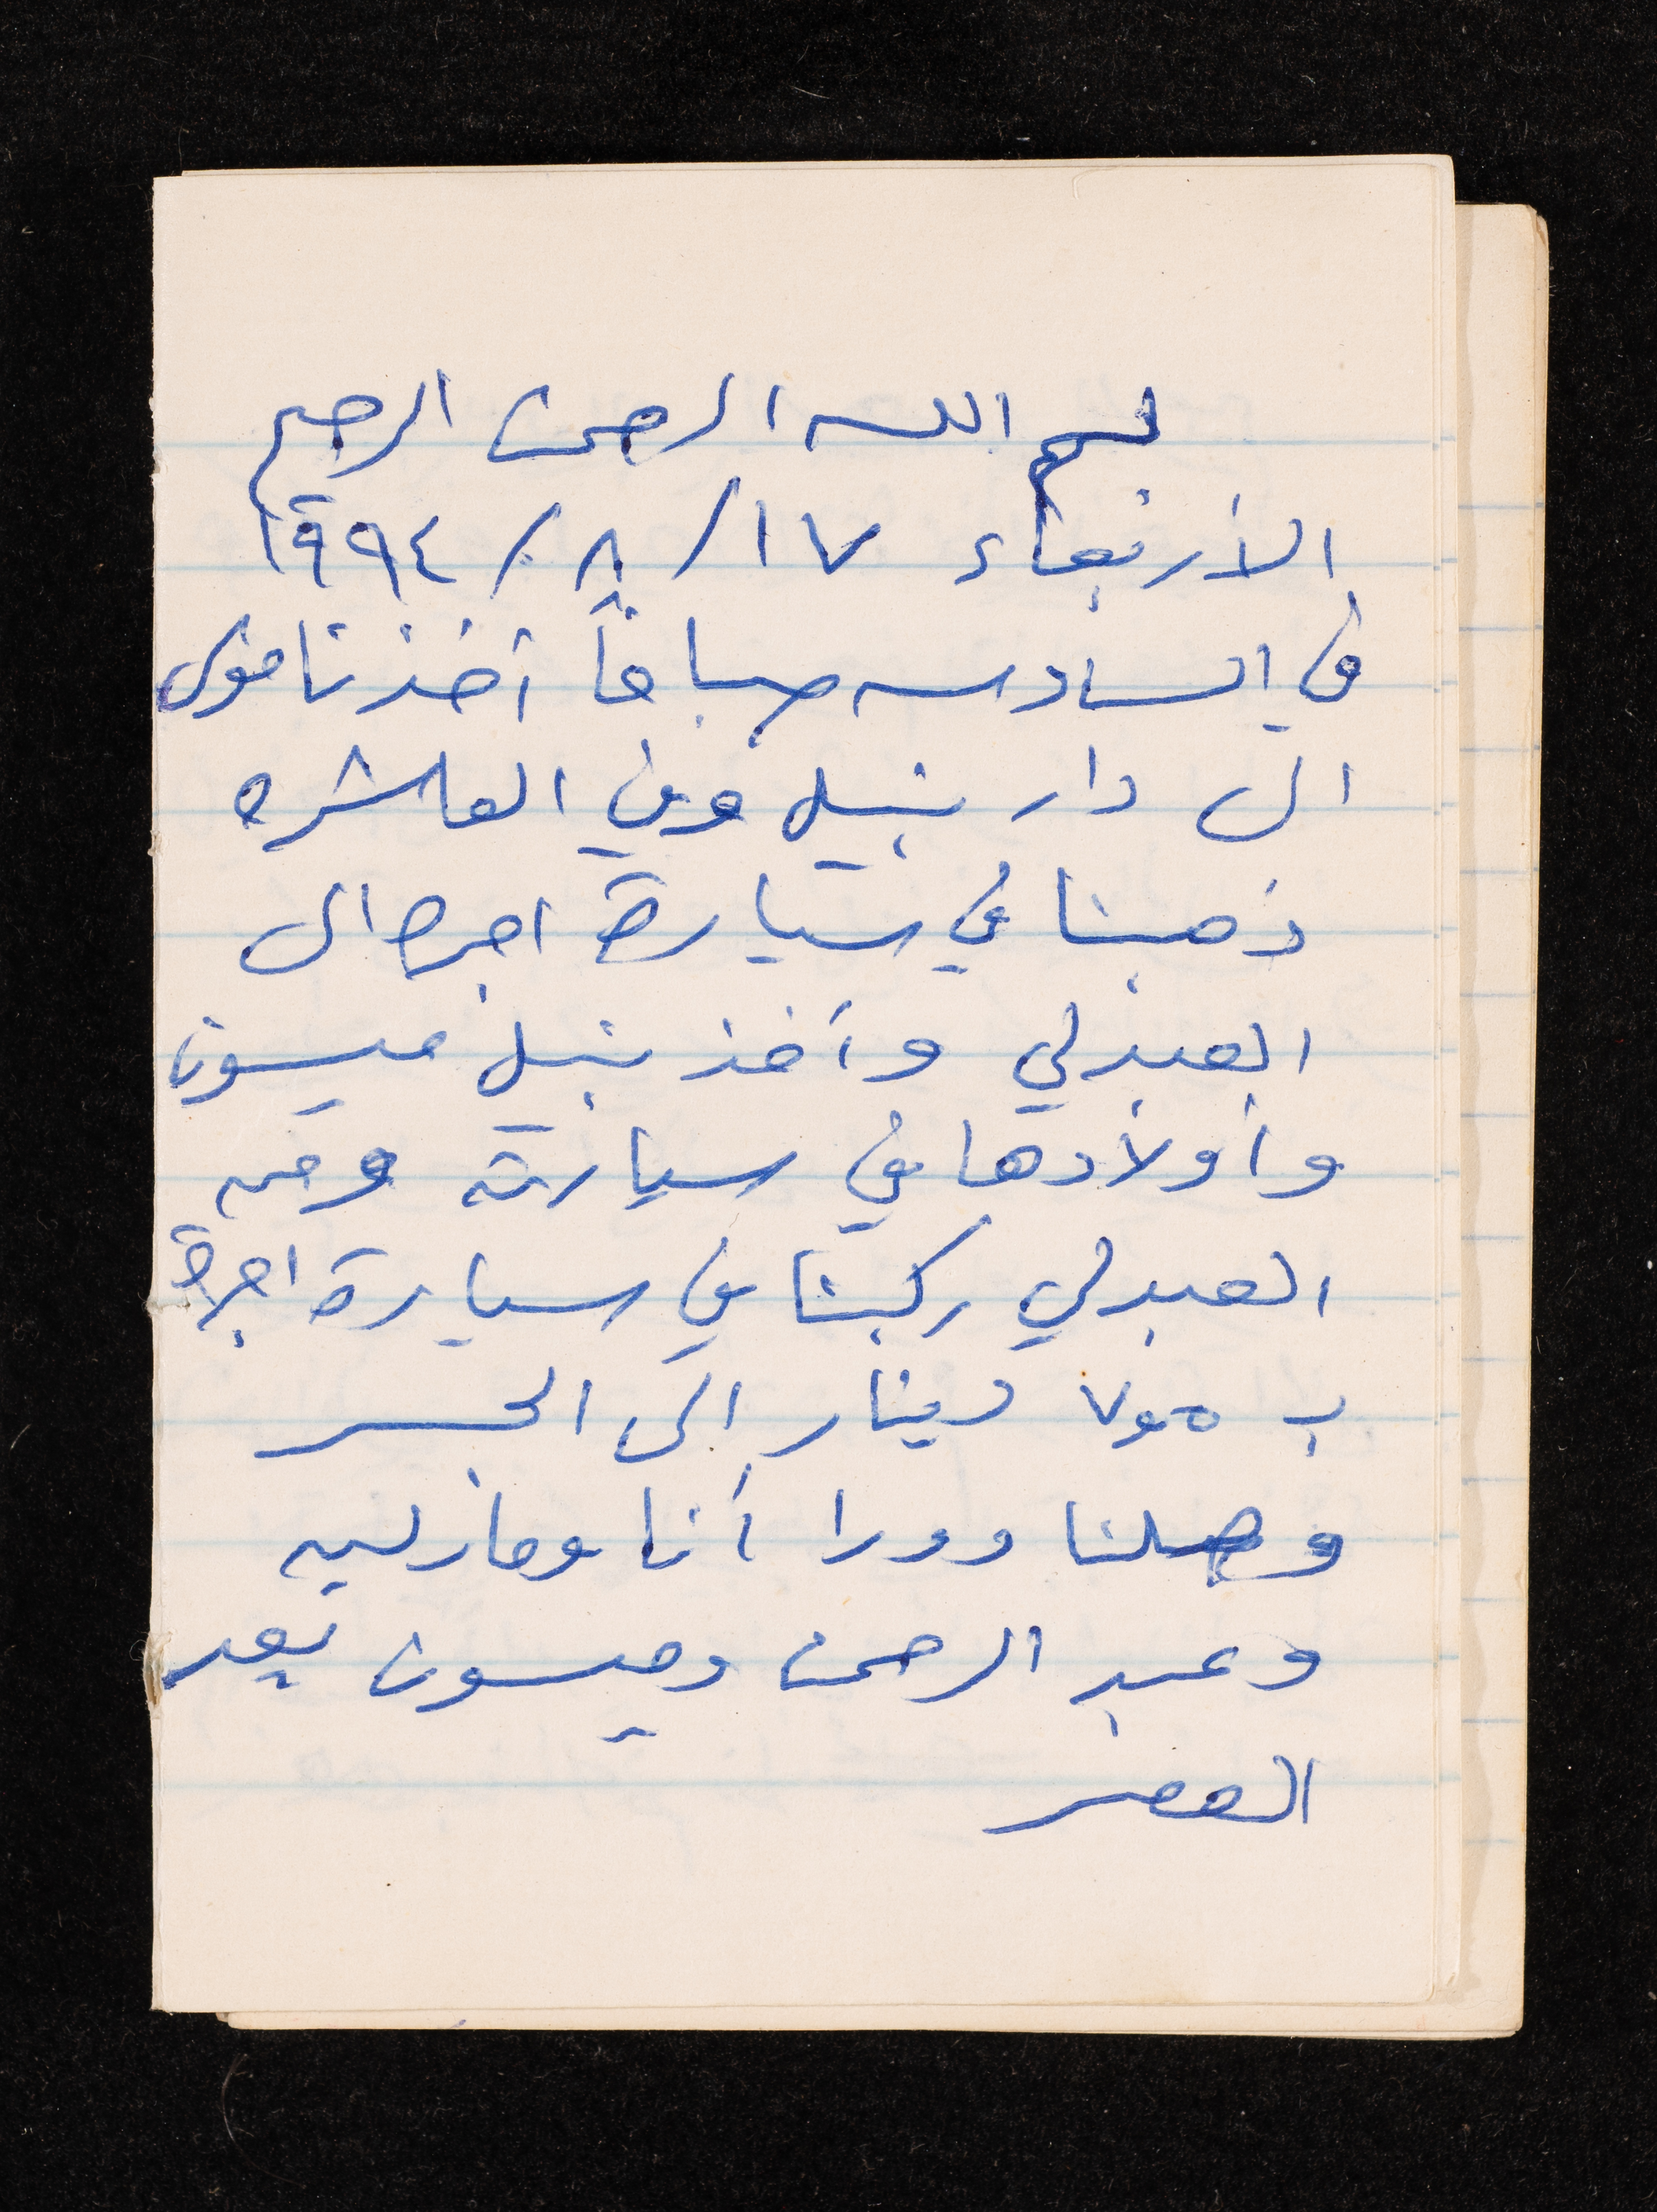 بسم الله الرحمن الرحيم
الأربعاء ١٧/ ٨/ ١٩٩٤
في السادسه صباحاً أخذنا موسى
الى دار نبيل وفي العاشره
ذهبنا في سيارة اجرة الى
العبدلي وأخذ نبيل ميسون
وأولادها في سيارته ومن
العبدلي ركبنا في سيارة اجرة
ب دينار إلى الجسر
وصلنا دورا أنا ومارلين
وعبد الرحمن وميسون بعد
العصر